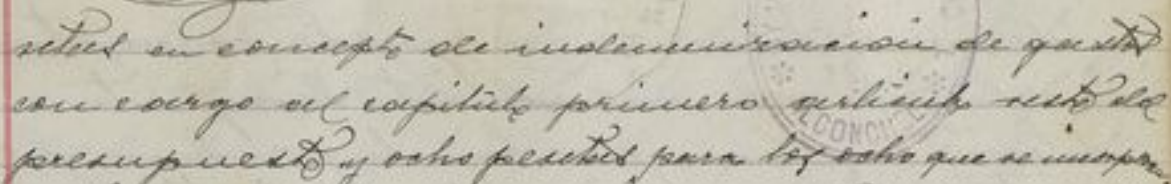 setas en concepto de indemnización de gastos
con cargo al capítulo primero artículo sexto del
presupuesto y ocho pesetas para los ocho que se